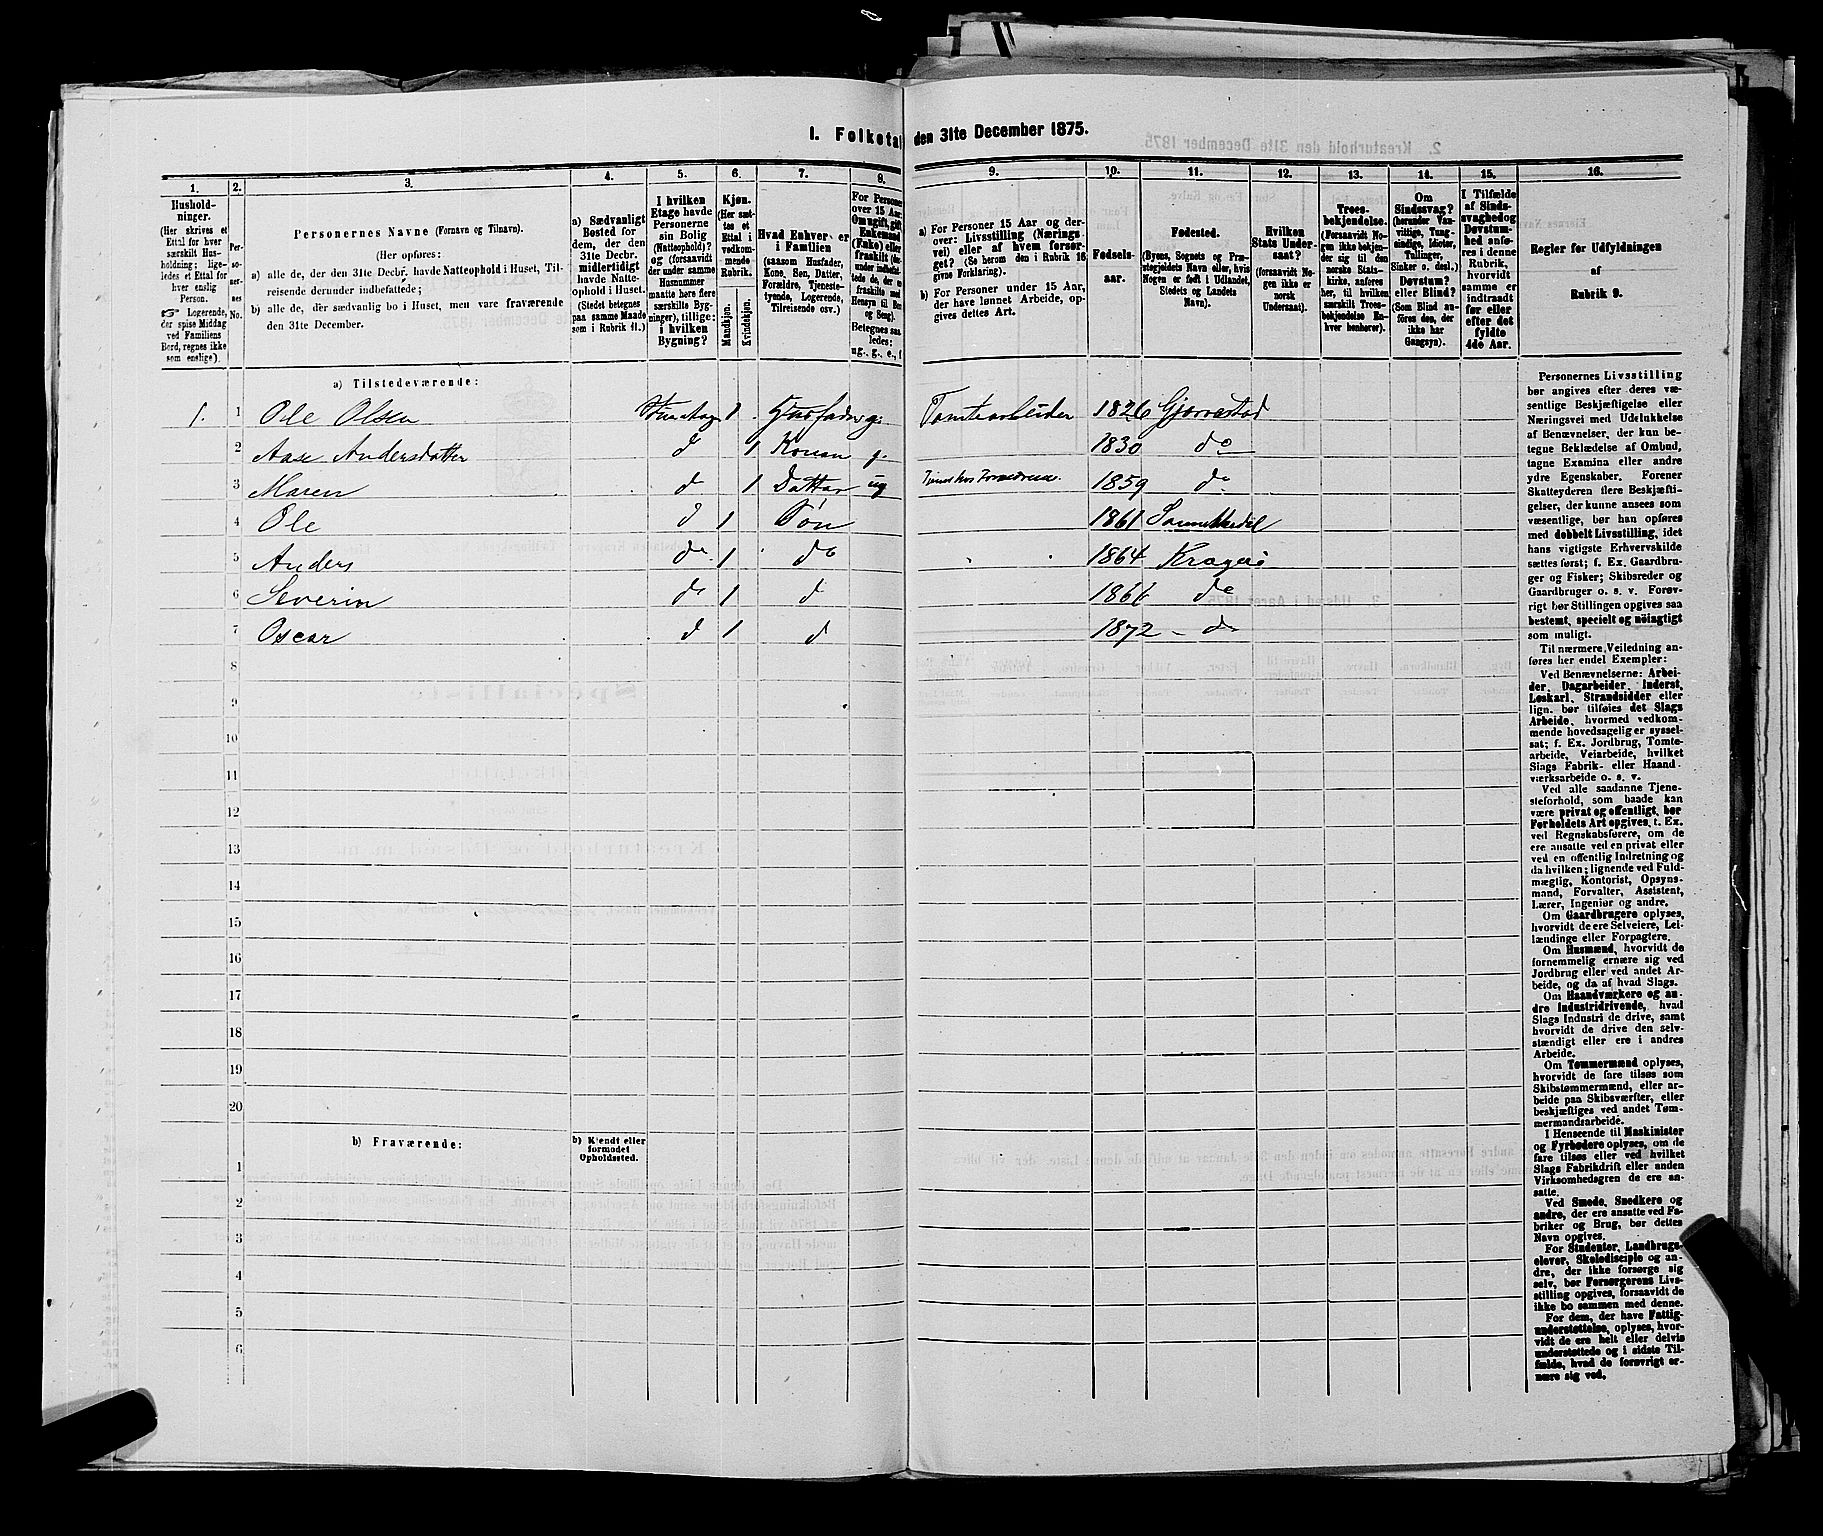 I. Folketal den 31te December 1875.
1. 2. 3. 4. 5. 6. 7. 8. 9. 10. 11. 12. 13. 14. 15. 16.
Hushold-
ninger.
(Her skrives et
Ettal for hver
særskilt Hus-
holdning; lige-
ledes et Ettal for
hver enslig
Person.
☞ Logerende,
der spise Middag
ved Familiens
Bord, regnes ikke
som enslige).
Per-
so-
ner-
nes
No.
Personernes Navne (Fornavn og Tilnavn).
(Her opføres:
a) alle de, der den 31te Decbr. havde Natteophold i Huset, Til-
reisende derunder indbefattede;
b) alle de, der sædvanlig bo i Huset, men vare fraværende
den 31te December.
a) Sædvanligt
Bosted for
dem, der den
31te Decbr.
midlertidigt
havde Natte-
ophold i Huset.
(Stedet betegnes
paa samme Maade
som i Rubrik 11.)
I hvilken
Etage havde
Personerne
sin Bolig
(Natteophold)?
og (forsaavidt
der under samme
Husnummer
maatte høre flere
særskilte Byg-
ninger), tillige:
i hvilken
Bygning?
Kjøn.
(Her sæt-
tes et
Ettal i
vedkom-
mende
Rubrik.
Mandkjøn.
Kvindekjøn.
Hvad Enhver er
i Familien
(saasom Husfader,
Kone, Søn, Datter,
Forældre, Tjeneste-
tyende, Logerende,
Tilreisende osv.)
For Persone
over 15 Aar:
Om ugift, gift
Enkemand
(Enke) eller
fraskilt
Betegnes saa-
ledes:
ug., g., e., f
a) For Personer 15 Aar og der-
over: Livsstilling (Nærings-
vei) eller af hvem forsør-
get? (Se herom den i Rubrik 16
givne Forklaring).
b) For Personer under 15 Aar,
der have lønnet Arbeide, op-
gives dettes Art.
Fødsels-
aar.
Fødested.
(Byens, Sognets og Præ-
stegjeldets Navn eller, hvis
Nogen er født i Udlandet,
Stedets og Landets
Navn).
Hvilken
Stats Under-
saat?
(forsaavidt No-
gen ikke er
norsk
Undersaat).
Troes-
bekjendelse.
(Forsaavidt No-
gen ikke bekjen-
der sig til den
norske Stats-
kirke, anføres
her, til hvilken
særskilt Troes-
bekjendelse En-
hver henhører).
Om
Sindssvag?
(herunder Van-
vittige, Tung-
sindige, Idioter,
Tullinger,
Sinker o. desl.)
Døvstum?
eller Blind?
(Som Blind an-
føres den, der
ikke har
Gangsyn).
I Tilfælde
af Sinds-
svaghed og
Døvstum-
hed anfø-
res i denne
Rubrik,
hvorvidt
samme er
indtraadt
før eller
efter det
fyldte
4de Aar.
Regler for Udfyldningen
af
Rubrik 9.
a) Tilstedeværende:
1. 1 Ole Olsen 1 Husfader g. Tomtearbeider 1826 Gjerrestad
2 Aase Andersdatter d 1 Konen g. 1830 do
3 Maren d 1 Datter ug 1859 do
4 Ole d 1 Søn 1861 Sannikedal
5 Anders do 1 do 1864 Kragerø
6 Severin do 1 d 1866 do
7 Oscar d 1 d 1872 do
8
9
10
11
12
13
14
15
16
17
18
19
20
b) Fraværende: b) Kjendt eller
formodet
Opholdssted.
1
2
3
4
5
6
Personernes Livsstilling
bør angives efter deres væ-
sentlige Beskjæftigelse eller
Næringsvei med Udelukkelse
af Benævnelser, der kun be-
tegne Beklædelse af Ombud,
tagne Examina eller andre
ydre Egenskaber. Forener
Skatteyderen flere Beskjæfti-
gelser, der kunne ansees som
væsentlige, bør han opføres
med dobbelt Livsstilling, idet
hans vigtigste Erhvervskilde
sættes først; f. Ex. Gaardbru-
ger og Fisker; Skibsreder og
Gaardbruger o. s. v. Forøv-
rigt bør Stillingen opgives saa
bestemt, specielt og nøiagtigt
som muligt.
Til nærmere Veiledning an-
føres her endel Exempler:
Ved Benævnelserne: Arbei-
der, Dagarbeider, Inderst,
Løskarl, Strandsidder eller
lign. bør tilføies det Slags
Arbeide, hvormed vedkom-
mende hovedsagelig er syssel-
sat; f. Ex. Jordbrug, Tomte-
arbeide, Veiarbeide, hvilket
Slags Fabrik- eller Haand-
værksarbeide o. s. v.
Ved alle saadanne Tjene-
steforhold, som baade kan
være privat og offentligt, bør
Forholdets Art opgives, t. Ex.
ved Regnskabsførere, om de
ere ansatte ved en privat eller
ved en offentlig Indretning og
da hvilken; lignende ved Fuld-
mægtig, Kontorist, Opsyns-
mand, Forvalter, Assistent,
Lærer, Ingeniør og andre.
Om Gaardbrugere oplyses,
hvorvidt de ere Selveiere, Lei-
lændinge eller Forpagtere.
Om Husmænd, hvorvidt de
fornemmelig ernære sig ved
Jordbrug eller ved andet Ar-
beide, og da af hvad Slags.
Om Haandværkere og an-
dre Industridrivende, hvad
Slags Industri de drive, samt
hvorvidt de drive den selv-
stændigt eller ere i andres
Arbeide.
Om Tømmermænd oplyses,
hvorvidt de fare tilsøs som
Skibstømmermænd, eller ar-
beide paa Skibsværfter, eller
beskjæftiges ved andet Tøm-
mermandsarbeide.
I Henseende til Maskinister
og Fyrbødere oplyses, om de
fare tilsøs eller ved hvilket
Slags Fabrikdrift eller anden
Virksomhedsgren de ere an-
satte.
Ved Smede, Snedkere og
andre, der ere ansatte ved Fa-
briker og Brug, bør dettes
Navn opgives.
For Studenter, Landbrugs-
elever, Skoledisciple og an-
dre, der ikke forsørge sig
selv, bør Forsørgerens Livs-
stilling opgives, forsaavidt de
ikke bo sammen med denne.
For dem, der have Fattig-
understøttelse, oplyses, hvor-
vidt de ere helt eller delvis
understøttede og i sidste Til-
fælde, hvad de forøvrigt er-
nære sig ved.